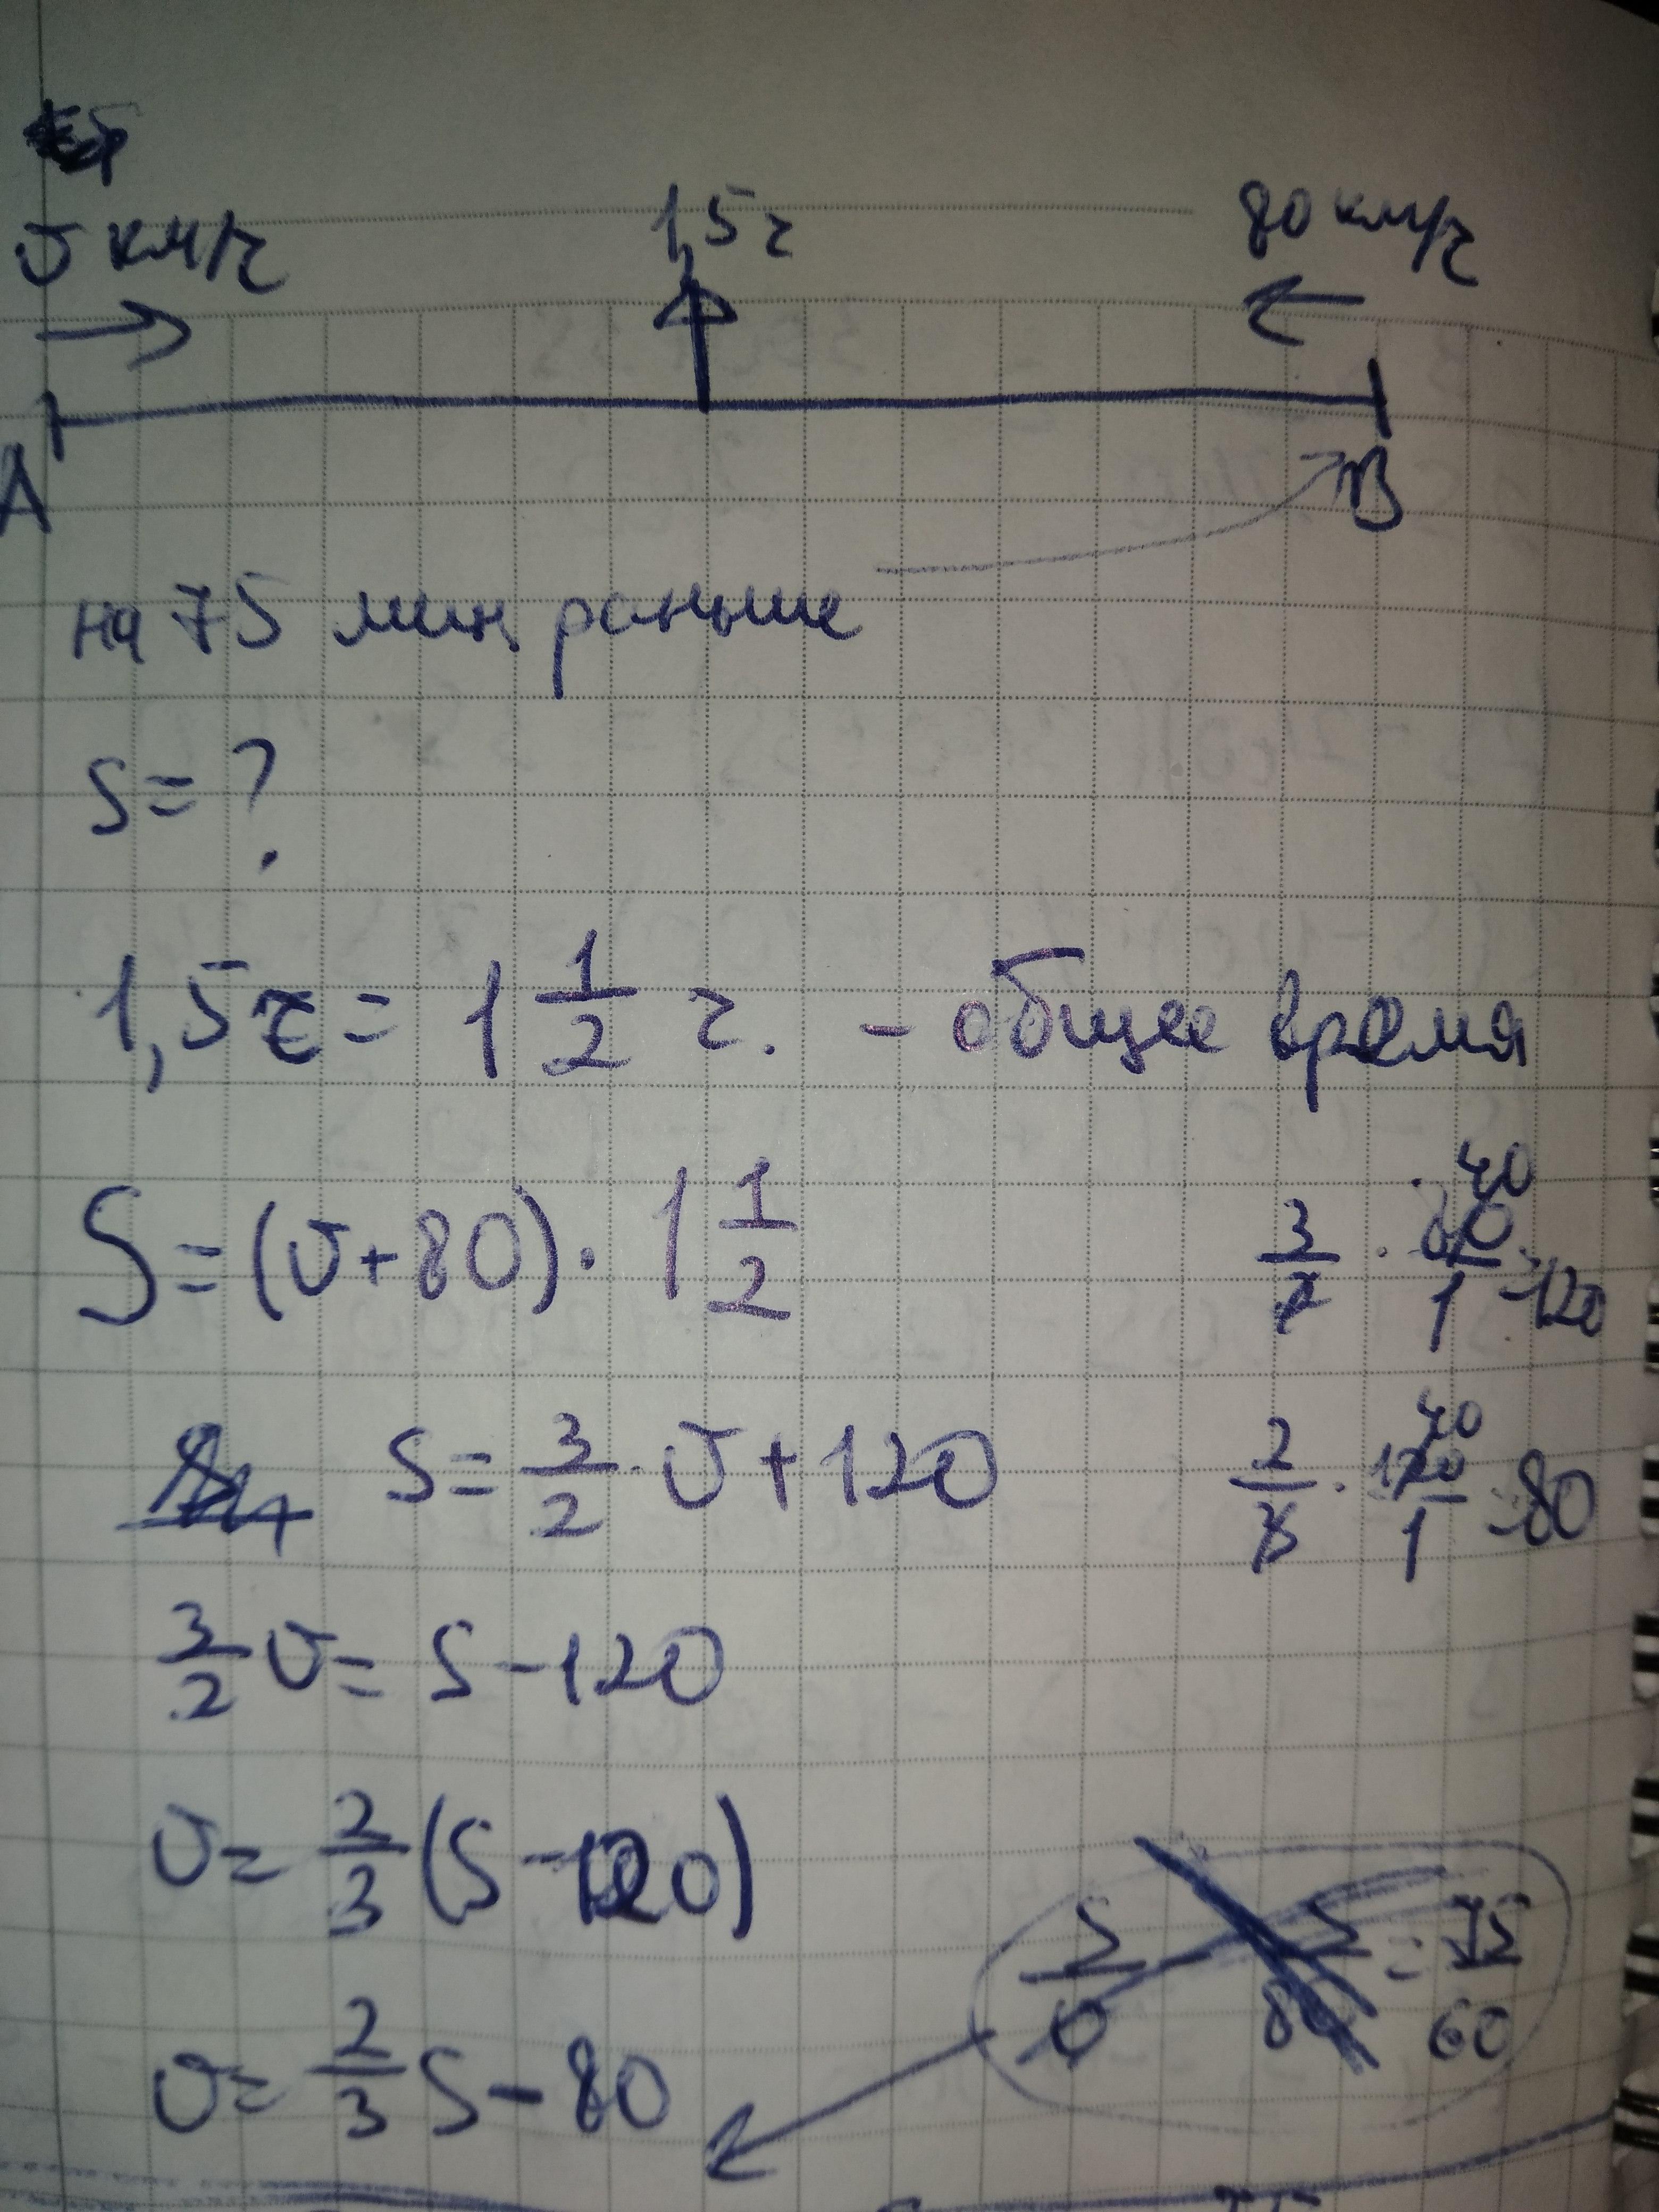 υ км/ч 1,5 ч 80 км/ч
A B
на 75 мин раньше
S = ?
1,5 ч = 1 1/2 ч. - общее время
S = (υ + 80) · 1 1/2
3/2 · 80/1 = 120
40
S = 3/2 · υ + 120
2/3 · 120/1 = 80
40
3/2 υ = S - 120
υ = 2/3 (S - 120)
S/υ - S/80 = 75/60
υ = 2/3 S - 80